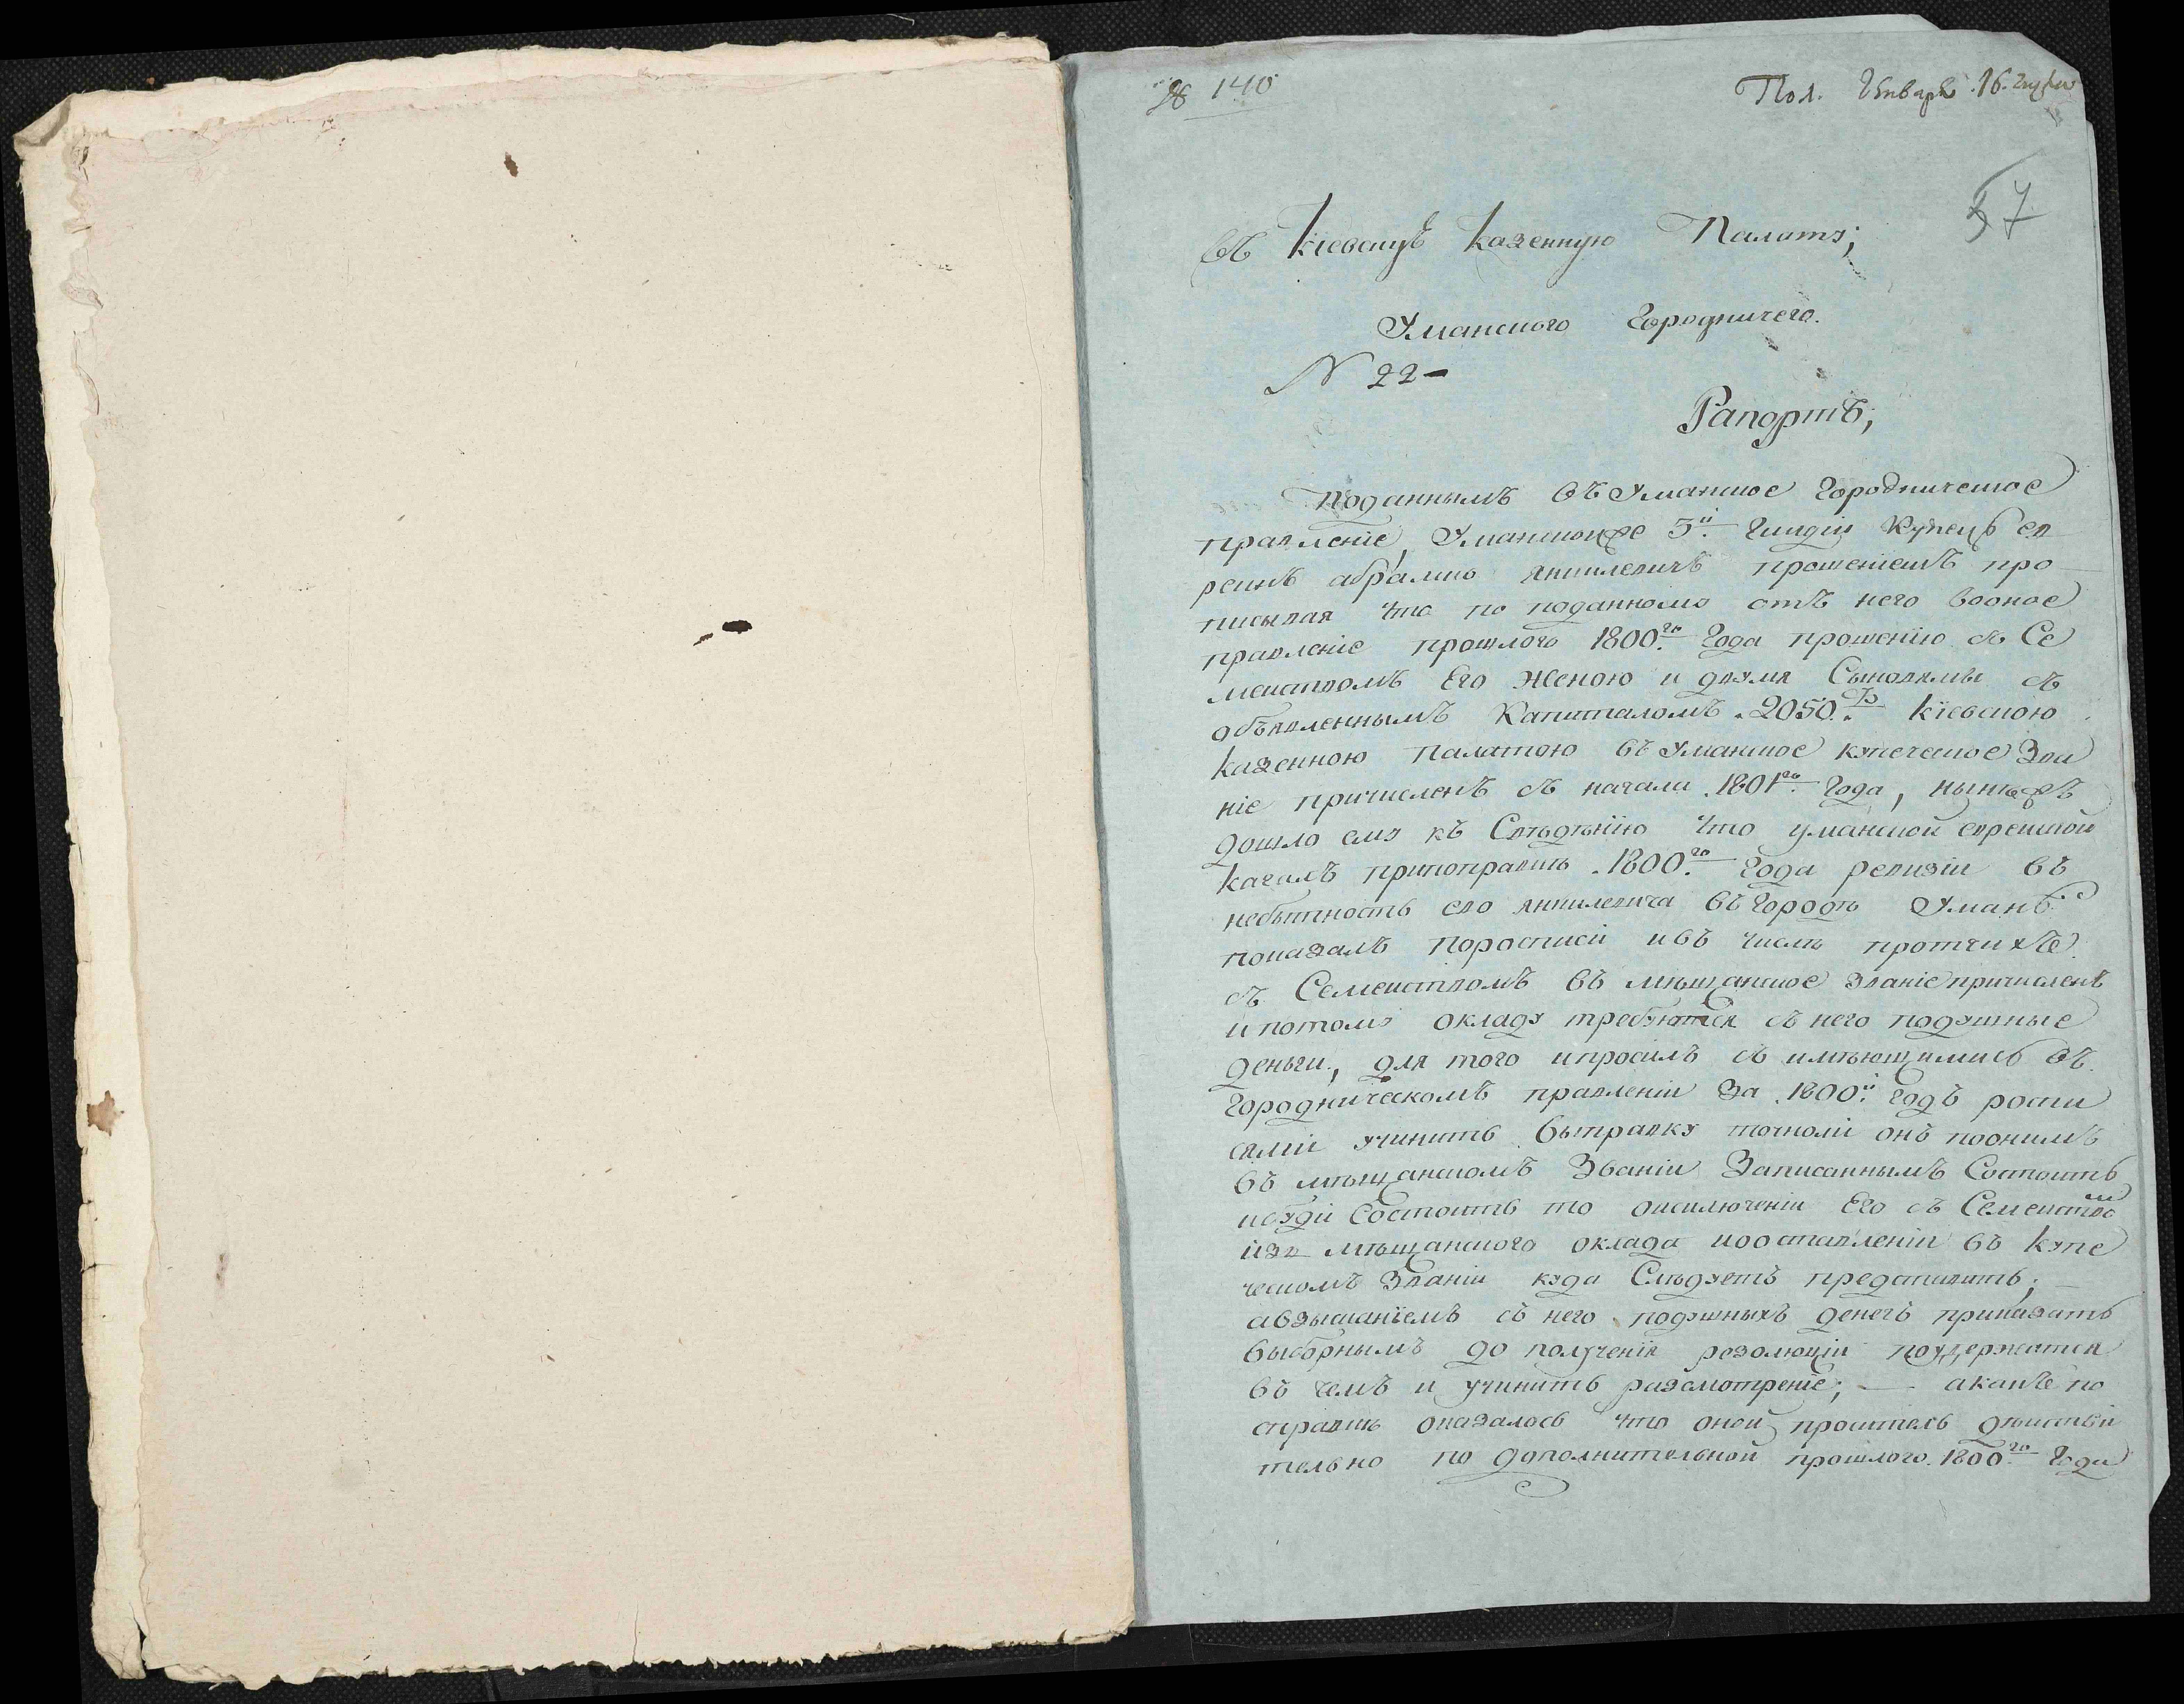 № 140
Пол. Генваря 16.
57
Въ Кіевскую Казенную Палату;
Уманского Городничего.
N 22 -
Рапортъ;
Поданнымъ въ Уманское Городническое
правленіе, Уманской 3й Гилдіи Купецъ ев
реинъ абрамко янкилевичъ прошеніемъ про
писывая что по поданному отъ него вооное
правленіе прошлого 1800го Года прошенію съ Се
меиствомъ Его женою и двумя Сыновямы съ
объявленнымъ Капиталомъ 2050 Кіевскою
Казенною Палатою въ Уманское купеческое Зва
ніе причисленъ съ начала 1801го Года, нынѣ
дошло ему къ Сведѣнію что уманской еврейской
кагалъ припоправки 1800го Года ревизіи въ
небытность его янкилевича въ Городѣ Уманѣ
показалъ поросписи ивъ числѣ протчихъ
съ Семеиствомъ въ мѣщанское званіе причисленъ
и потому окладу требуются съ него подушные
деньги, для того ипросилъ съ имѣющимись въ
Городническомъ правленіи За 1800й Годъ роспи
сямы учинить выправку точноли онъ поонимъ
въ мѣщанскомъ Званіи Записаннымъ Состоитъ
ибуди Состоитъ то оисключеніи Его съ Семеиством
изъ мѣщанского оклада иооставленіи въ купе
ческомъ Званіи куда Слѣдуетъ представить;
авзысканіемъ съ него подушныхъ денегъ приказать
выборнымъ до полученія резолюціи поудержатся
въ чемъ и учинить разсмотреніе; — акакъ по
справкѣ оказалось что оной проситель дѣистви
тельно по дополнительной прошлого 1800го Года